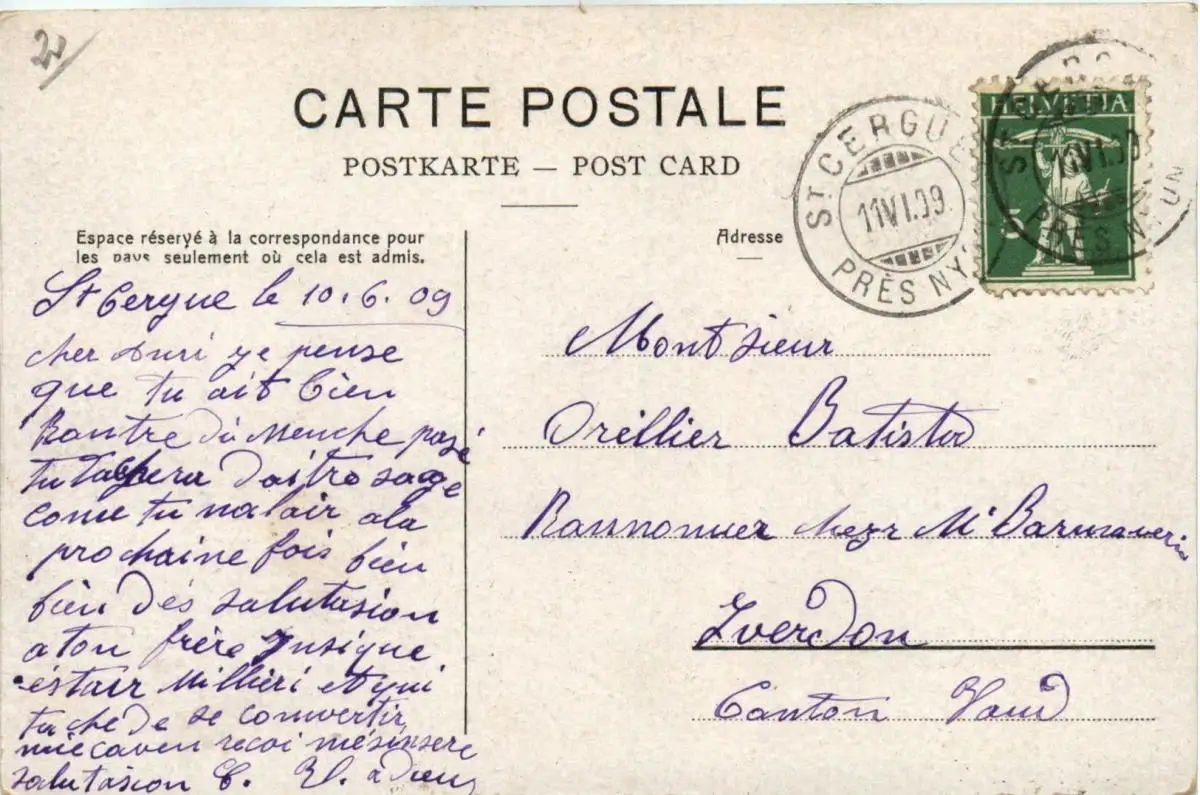 CARTE POSTALE
POSTKARTE — POST CARD
Espace réservé à la correspondance pour
les pays seulement où cela est admis.
Adresse
HELVETIA
5
ST CERGUE
11 VI.09
PRÈS NY
ST CERGUE
VI.09
PRÈS NYON
St Cergue le 10.6.09
cher ye pense
que tu ait bien
Rantre du Menche pasé
tu tachera daitre sage
come tu nalair ala
prochaine fois bien
bien dés salutasion
a ton frère Insique
éstair et qui
tache de se convertir
recoi mésinsere
salutasion B. V. adieu
Montsieur
Orellier Batista
chezr Mr
Iverdon
Canton Vaud